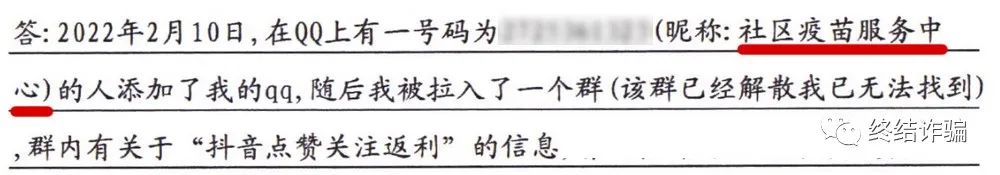 答:2022年2月10日,在QQ上有一号码为(昵称:社区疫苗服务中
心)的人添加了我的qq,随后我被拉入了一个群(该群已经解散我已无法找到)
,群内有关于“抖音点赞关注返利”的信息
终结诈骗